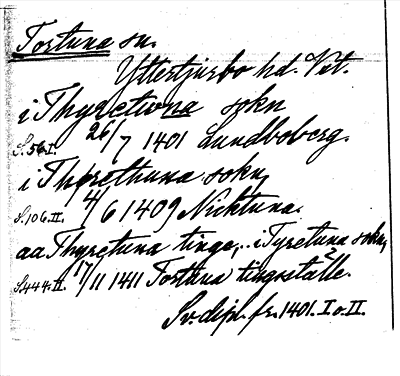 Tortuna sn.
Yttertjurbo hd. Vst.
i Thyretuna sokn
S. 56 I. 26/7 1401 Lundboberg.
i Thyrethuna sokn,
S. 106. II. 4/6 1409 Nichtuna.
aa Thyretuna tinge, .. i Tyretuna sokn,
S. 444. II. 17/11 1411 Tortuna tingsställe.
Sv. dipl. fr. 1401. I o. II.